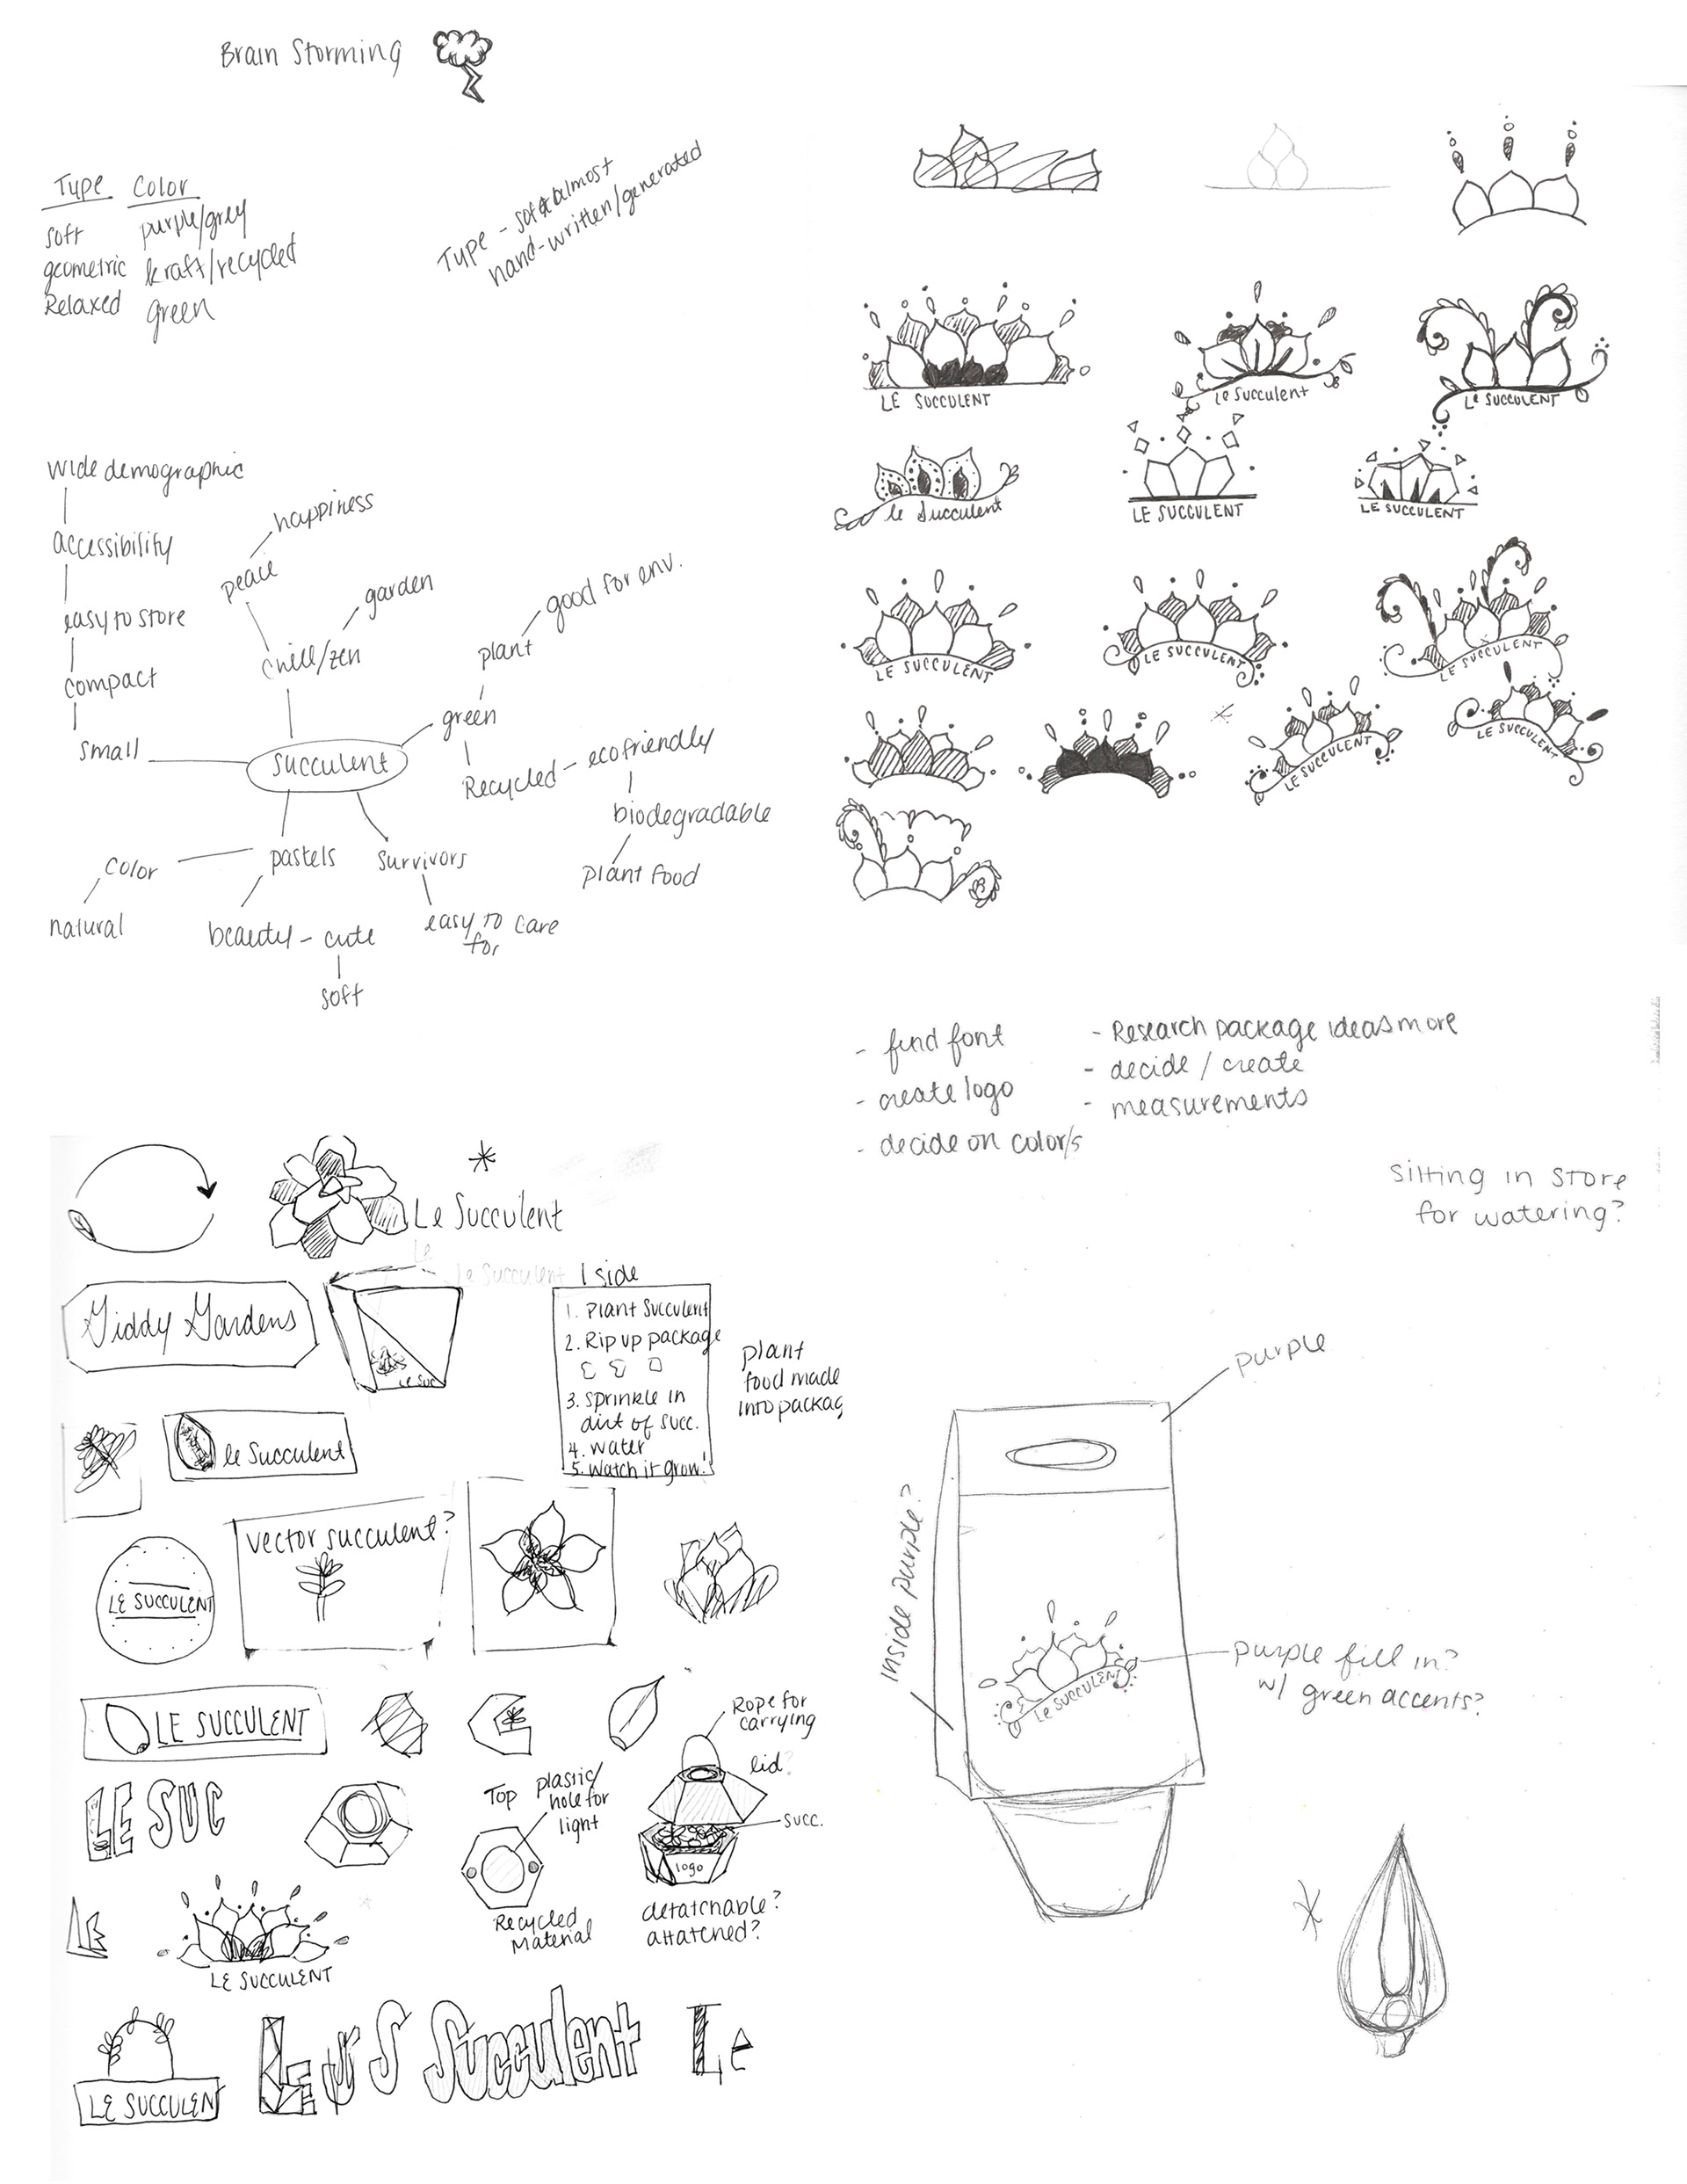 Brain Storming
Type Color
soft purple/grey
geometric kraft/recycled
Relaxed green
Type - soft almost
hand-written/generated
wide demographic
accessibility
easy to store
compact
small
happiness
peace
chill/zen
garden
succulent
green
plant
good for env.
Recycled - ecofriendly
biodegradable
plant food
color
natural
pastels
beauty - cute
soft
survivors
easy to care
for
LE SUCCULENT
Le Succulent
Le SUCCULENT
le Succulent
LE SUCCULENT
LE SUCCULENT
LE SUCCULENT
LE SUCCULENT
LE SUCCULENT
LE SUCCULENT
LE SUCCULENT
- find font
- create logo
- decide on color/s
- Research package ideas more
- decide / create
- measurements
sitting in store
for watering?
Le Succulent
Le
Le Succulent
Giddy Gardens
Le Suc
1 side
1. Plant Succulent
2. Rip up package
3. sprinkle in
dirt of succ.
4. water
5. watch it grow!
plant
food made
into packag
le Succulent
LE SUCCULENT
vector succulent?
LE SUCCULENT
LE SUC
Top
plastic/
hole for
light
Recycled
Material
Rope for
carrying
lid?
succ.
logo
detatchable?
attatched?
LE
LE SUCCULENT
LE SUCCULEN
Le
S
Succulent
Le
purple
inside purple?
Le SUCCULENT
purple fill in?
w/ green accents?